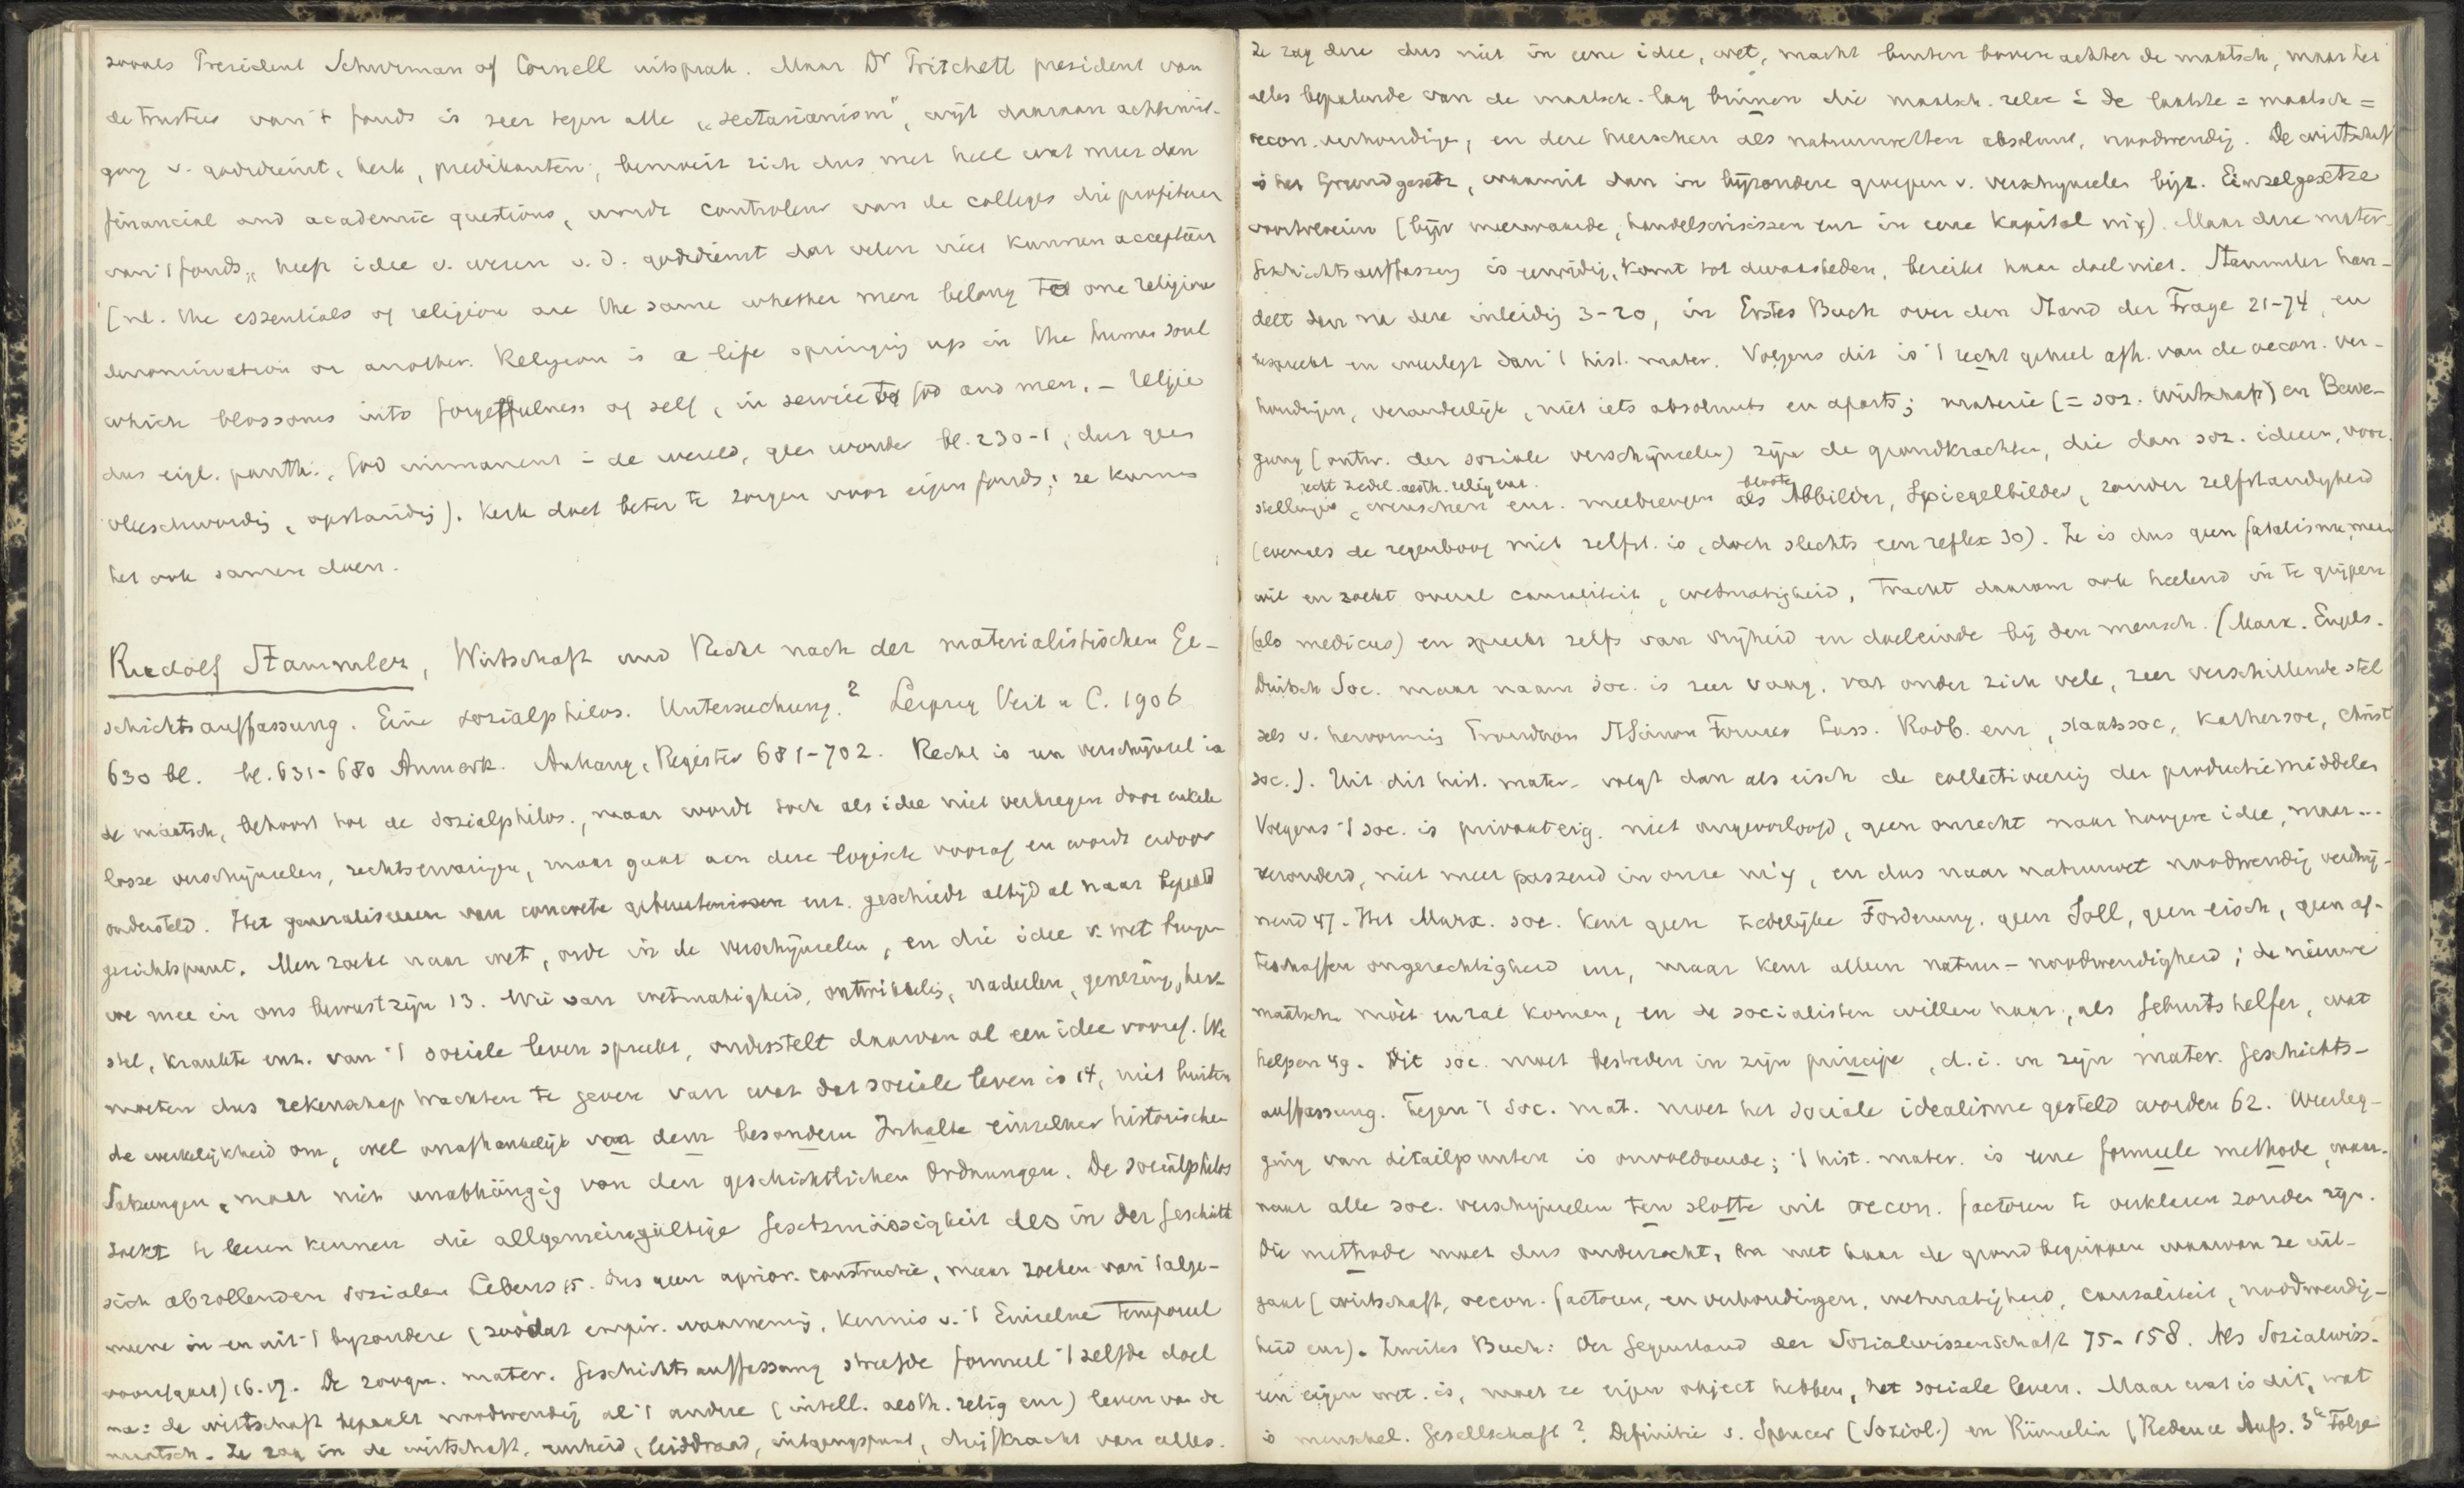 zooals President Schurman of Cornell uitsprak. Maar Dr Pritchett president van
de trustees van 't fonds is zeer tegen alle „sectarianism", wijt daaraan achteruit-
gang v. godsdienst, kerk, predikanten; bemoeit zich dus met heel wat meer dan
financial and academic questions, wordt controleur van de colleges die profiteeren
van 't fonds, heeft idee v. wezen v. d. godsdienst dat velen niet kunnen accepteeren
(nl. the essentials of religion are the same whether men belong to one religious
denomination or another. Religion is a life springing up in the human soul
which blossoms into forgetfulness of self, in service to God and men. – religie
dus eigl. panth., God immanent in de wereld, geen wonder bl. 230-1, dus geen
vleeschwording, opstanding). Kerk doet beter te zorgen voor eigen fonds; ze kunnen
het ook samen doen.
Rudolf Stammler, Wirtschaft und Recht nach der materialistischen Ge-
schichtsauffassung. Eine sozialphilos. Untersuchung.² Leipzig Veit u C. 1906
630 bl. bl. 631-680 Anmerk. Anhang, Register 681-702. Recht is een verschijnsel in
de maatsch, behoort tot de sozialphilos., maar wordt toch als idee niet verkregen door enkele
losse verschijnselen, rechtservaringen, maar gaat aan deze logisch vooraf en wordt erdoor
ondersteld. Het generaliseeren van concrete gebeurtenissen enz. geschiedt altijd al naar bepaald
gezichtspunt. Men zoekt naar wet, orde in de verschijnselen, en die idee v. wet brengen
we mee in ons bewustzijn 13. Wie van wetmatigheid, ontwikkelg, nadeelen, genezing, her-
stel, krankte enz. van 't sociale leven spreekt, onderstelt daarvan al een idee vooraf. We
moeten dus rekenschap trachten te geven van wat dat sociale leven is 14, niet buiten
de werkelijkheid om, wel onafhankelijk von dem besondern Inhalte einzelner historischer
Satzungen, maar niet unabhängig von den geschichtlichen Ordnungen. De socialphilos
zoekt te leeren kennen die allgemeingültige Gesetzmässigkeit des in der Geschichte
sich abrollenden sozialen Lebens 15. dus geen aprior. constructie, maar zoeken van 't alge-
meene in en uit 't byzondere (zoodat empir. waarneming, kennis v. 't Einzelne temporeel
voorafgaat) 16.17. De zoogn. mater. Geschichtsauffassung streefde formeel 't zelfde doel
na: de wirtschaft bepaalt noodwendig al 't andere (intell. aesth. relig enz) leven van de
maatsch. Ze zag in de wirtschaft, eenheid, leiddraad, uitgangspunt, drijfkracht van alles.
Ze zag deze dus niet in eene idee, wet, macht buiten boven achter de maatsch, maar het
alles bepalende van de maatsch. lag binnen die maatsch. zelve in de laatste = maatsch =
oecon. verhoudingen, en deze heerschen als natuurwetten absoluut, noodwendig. De wirtschaft
is het Grundgesetz, waaruit dan in byzondere groepen v. verschijnselen bijz. Einzelgesetze
voortvloeien (bijv meerwaarde, handelscrisissen enz in eene Kapital mij). Maar deze mater.
Geschichtsauffassung is eenzijdig, komt tot dwaasheden, bereikt haar doel niet. Stammler han-
delt dan na deze inleidg 3-20, in Erstes Buch over den Stand der Frage 21-74, en
bespreekt en weerlegt dan 't hist. mater. Volgens dit is 't recht geheel afh. van de oecon. ver-
houdingen, veranderlijk, niet iets absoluuts en aparts; materie (= soz. Wirtschaft) en Bewe-
gung (ontw. der soziale verschijnselen) zijn de grondkrachten, die dan soz. ideeen, voor-
recht zedel. aesth. relig enz. bloote
stellingen, wenschen enz. meebrengen als Abbilder, Spiegelbilder, zonder zelfstandigheid
(evenals de regenboog niet zelfst. is, doch slechts een reflex 30). Ze is dus geen fatalisme, maar
wil en zoekt overal causaliteit, wetmatigheid, tracht daarom ook heelend in te grijpen
(als medicus) en spreekt zelfs van vrijheid en doeleinde bij den mensch. (Marx. Engels.
Duitsch Soc. maar naam soc. is zeer vaag, vat onder zich vele, zeer verschillende stel
sels v. hervorming Proudhon St Simon Fourier Lass. Rodb. enz, staatssoc, Kathersoc, Christ
soc.). Uit dit hist. mater. volgt dan als eisch de collectiveerig der productiemiddelen
Volgens 't soc. is privaateig. niet ongeoorloofd, geen onrecht naar hoogere idee, maar...
verouderd, niet meer passend in onze mij, en dus naar natuurwet noodwendig verdwij-
nend 47. Het Marx. soc. kent geen zedelijke Forderung, geen Soll, geen eisch, geen af-
teschaffen ongerechtigheid enz, maar kent alleen natuur-noodwendigheid; de nieuwe
maatsch. moet en zal komen, en de socialisten willen haar, als Geburtshelfer, wat
helpen 49. Dit soc. moet bestreden in zijn principe, d.i. in zijn mater. Geschichts-
auffassung. Tegen 't soc. mat. moet het sociale idealisme gesteld worden 62. Weerleg-
ging van detailpunten is onvoldoende; 't hist. mater. is eene formeele methode, waar-
naar alle soc. verschijnselen ten slotte uit oecon. factoren te verklaren zouden zijn.
Die methode moet dus onderzocht, en met haar de grondbegrippen waarvan ze uit-
gaat (wirtschaft, oecon. factoren, en verhoudingen, wetmatigheid, causaliteit, noodwendig-
heid enz). Zweites Buch: Der Gegenstand der Sozialwissenschaft 75-158. Als Sozialwiss.
een eigen wet. is, moet ze eigen object hebben, het sociale leven. Maar wat is dit, wat
is menschel. Gesellschaft? Definitie v. Spencer (Soziol.) en Rümelin (Reden u Aufs. 3e Folge